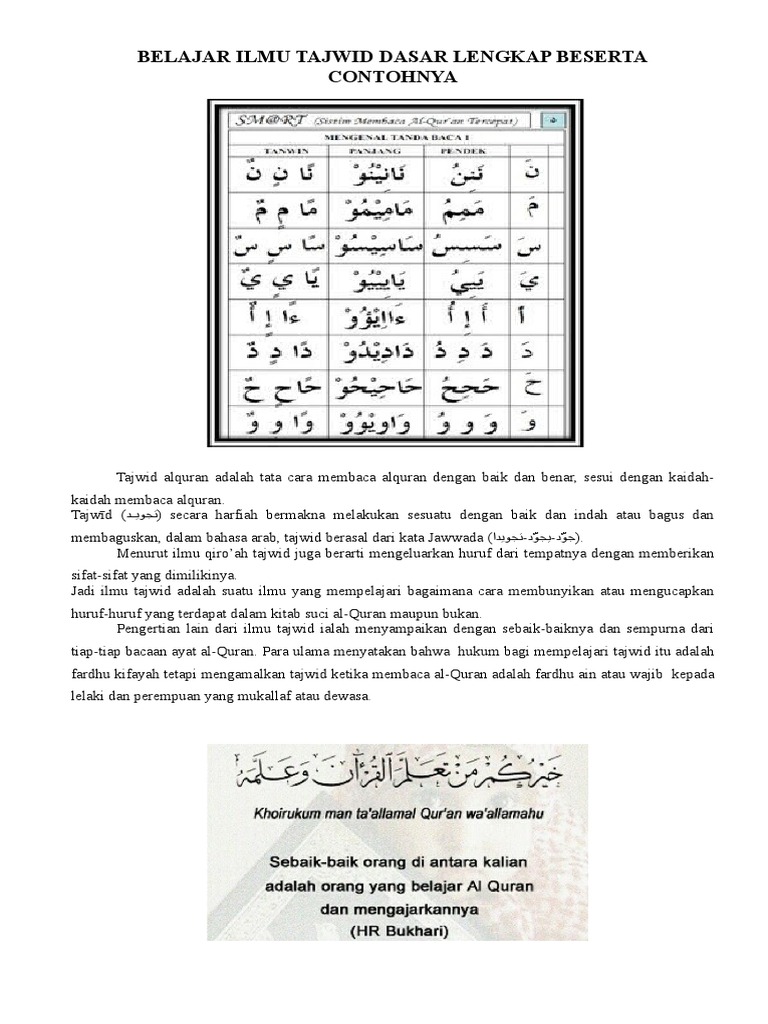 BELAJAR ILMU TAJWID DASAR LENGKAP BESERTA
CONTOHNYA
SM@RT (Sistim Membaca Al-Qur'an Tercepat) ٥
MENGENAL TANDA BACA 1
TANWIN PANJANG PENDEK
نَ نَنِنُ نَانِيْنُوْ نًا نٍ نٌ
مَ مَمِمُ مَامِيْمُوْ مًا مٍ مٌ
سَ سَسِسُ سَاسِيْسُوْ سًا سٍ سٌ
يَ يَيِيُ يَايِيْيُوْ يًا يٍ يٌ
أَ أَ إِ أُ ءَاإِيْؤُوْ ءًا إٍ أٌ
دَ دَ دِ دُ دَادِيْدُوْ دًا دٍ دٌ
حَ حَحِحُ حَاحِيْحُوْ حًا حٍ حٌ
وَ وَ وِ وُ وَاوِيْوُوْ وًا وٍ وٌ
Tajwid alquran adalah tata cara membaca alquran dengan baik dan benar, sesui dengan kaidah-
kaidah membaca alquran.
Tajwīd (تجويد) secara harfiah bermakna melakukan sesuatu dengan baik dan indah atau bagus dan
membaguskan, dalam bahasa arab, tajwid berasal dari kata Jawwada (جوّد-يجوّد-تجويدا).
Menurut ilmu qiro’ah tajwid juga berarti mengeluarkan huruf dari tempatnya dengan memberikan
sifat-sifat yang dimilikinya.
Jadi ilmu tajwid adalah suatu ilmu yang mempelajari bagaimana cara membunyikan atau mengucapkan
huruf-huruf yang terdapat dalam kitab suci al-Quran maupun bukan.
Pengertian lain dari ilmu tajwid ialah menyampaikan dengan sebaik-baiknya dan sempurna dari
tiap-tiap bacaan ayat al-Quran. Para ulama menyatakan bahwa hukum bagi mempelajari tajwid itu adalah
fardhu kifayah tetapi mengamalkan tajwid ketika membaca al-Quran adalah fardhu ain atau wajib kepada
lelaki dan perempuan yang mukallaf atau dewasa.
خَيْرُكُمْ مَنْ تَعَلَّمَ الْقُرْءَانَ وَعَلَّمَهُ
Khoirukum man ta'allamal Qur'an wa'allamahu
Sebaik-baik orang di antara kalian
adalah orang yang belajar Al Quran
dan mengajarkannya
(HR Bukhari)